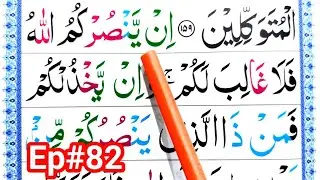 الْمُتَوَكِّلِيْنَ ﴿۱۵۹﴾ اِنْ يَّنْصُرْكُمُ اللّٰهُ
فَلَا غَالِبَ لَكُمْ ۚ وَاِنْ يَّخْذُلْكُمْ
فَمَنْ ذَا الَّذِيْ يَنْصُرُكُمْ مِّنْۢ
Ep#82